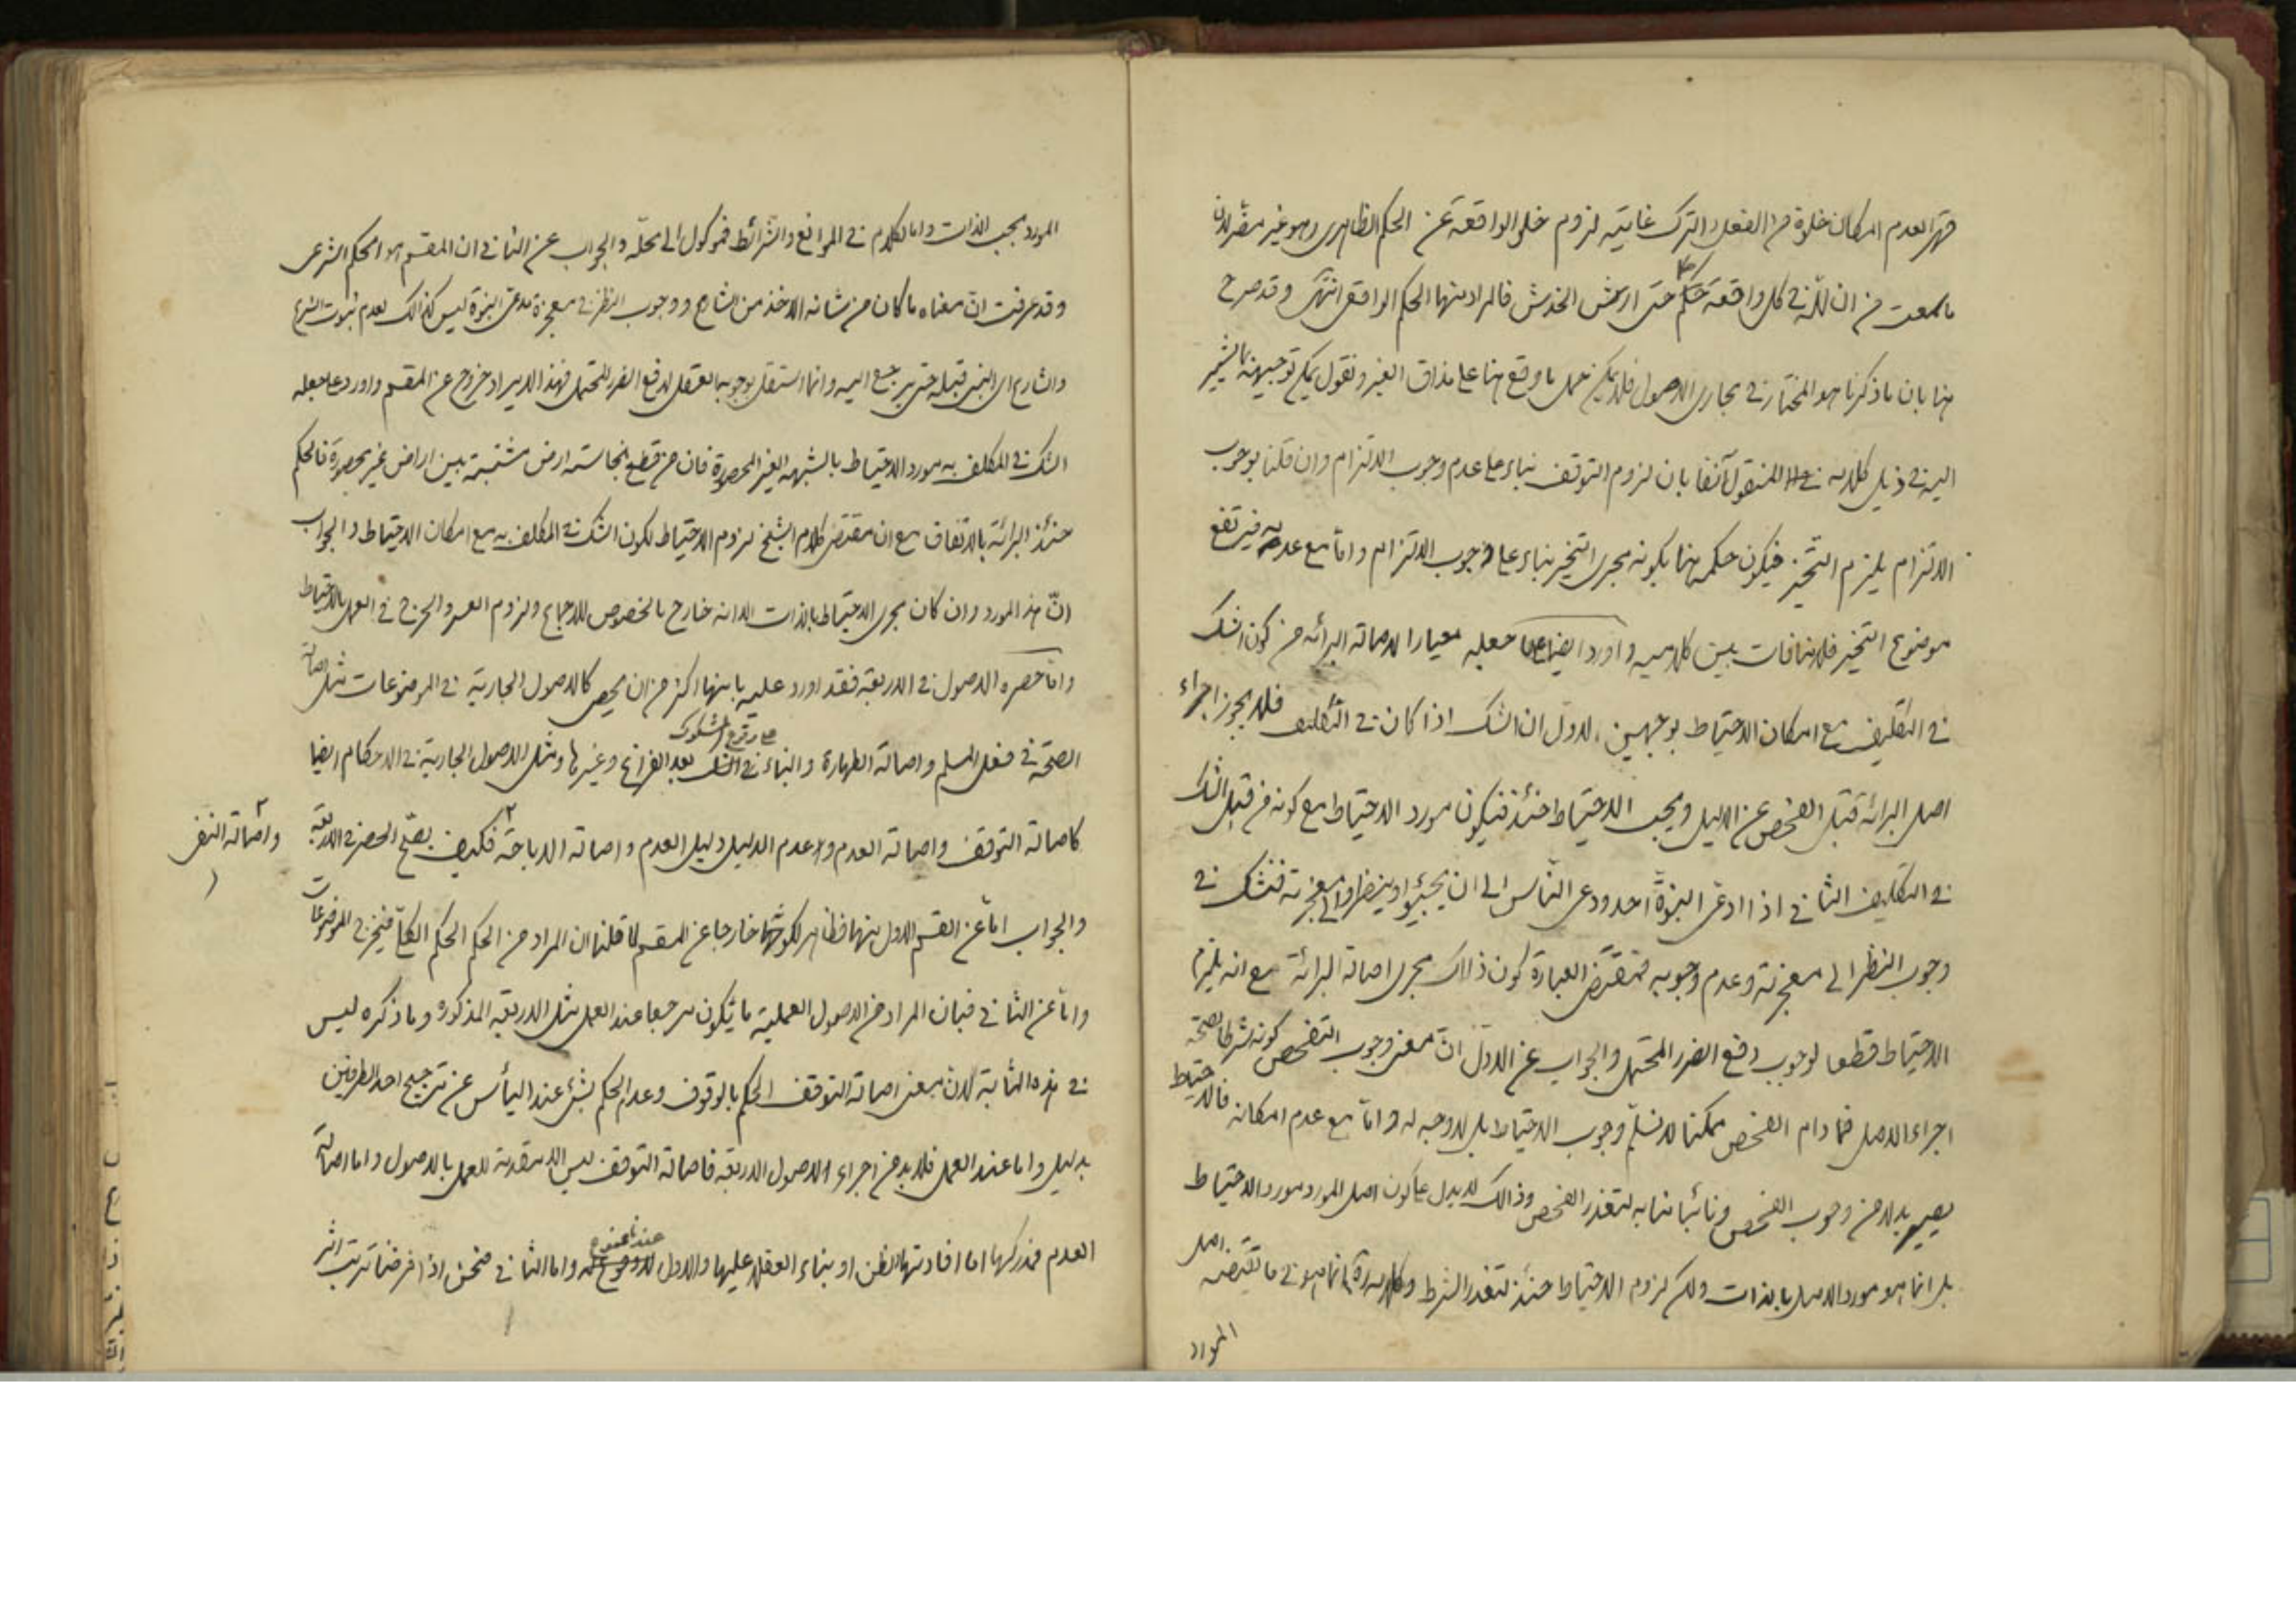 قهر العدم امكان خلوه من الفعل والترك غايته لزوم خلو الواقعة عن الحكم الظاهرى وهو غير مضر لان
ما سمعت من ان لله فى كل واقعة حكم حتى ارش الخدش فالمراد منها الحكم الواقعى انتهى وقد صرح
هنا بان ما ذكرنا هو المختار فى مجارى الاصول فلا يمكن حمل ما وقع هنا على مذاق الغير ونقول يمكن توجيهه بما يشير
اليه فى ذيل كلامه المنقول آنفا بان لزوم التوقف بناء على عدم وجوب الالتزام وان قلنا بوجوب
الالتزام يلزم التخيير فيكون حكمه هنا بكونه مجرى التخيير بناء على وجوب الالتزام واما مع عدمه فيرتفع
موضوع التخيير فلا منافات بين كلاميه واورد ايضا على ما جعله معيارا لاصالة البرائه من كون الشك
فى التكليف مع امكان الاحتياط بوجهين الاول ان الشك اذا كان فى التكليف فلا يجوز اجراء
اصل البرائة قبل الفحص عن الدليل ويجب الاحتياط حينئذ فيكون مورد الاحتياط مع كونه من قبل الشك
فى التكليف الثانى اذا ادعى النبوة احد ودعى الناس الى ان يجيئوا وينظروا الى معجزته فنشك فى
وجوب النظر الى معجزته وعدم وجوبه فمقتضى العبارة كون ذالك مجرى اصالة البرائة مع انه يلزم
الاحتياط قطعا لوجوب دفع الضرر المحتمل والجواب عن الاول ان معنى وجوب التفحص كونه شرطا لصحة
اجراء الاصل فما دام الفحص ممكنا لا نسلم وجوب الاحتياط بل لا وجه له واما مع عدم امكانه فالاحتياط
يصير بدلا من وجوب الفحص ونائبا منابه لتعذر الفحص وذالك لا يدل على كون اصل المورد مورد الاحتياط
بل انما هو مورد الاصل بالذات ولكن لزوم الاحتياط حينئذ لتعذر الشرط وكلامه ره انما هو فى ما تقتضيه اصل
المورد
المورد بحسب الذات واما الكلام فى الموانع والشرائط فموكول الى محله والجواب عن الثانى ان المقسم هو الحكم الشرعى
وقد عرفت ان معناه ما كان من شانه الاخذ من الشارع ووجوب النظر فى معجزة مدعى النبوة ليس كذالك لعدم ثبوت الشرع
والشارع اى النبى قبله حتى يرجع اليه وانما استقل بوجوبه العقل لدفع الضرر المحتمل فهذا الايراد خروج عن المقسم واورد على ما جعله
الشك فى المكلف به مورد الاحتياط بالشبهه الغير المحصورة فان من قطع بنجاسته ارض مشتبهة بين اراضى غير محصورة فالحكم
حينئذ البرائة بالاتفاق مع ان مقتضى كلام الشيخ لزوم الاحتياط لكون الشك فى المكلف به مع امكان الاحتياط والجواب
ان هذ المورد وان كان مجرى الاحتياط بالذات الا انه خارج بالخصوص للاجماع ولزوم العسر والحرج فى العمل بالاحتياط
واما حصره الاصول فى الاربعة فقد اورد عليه بانها اكثر من ان يحصى كالاصول الجارية فى الموضوعات مثل اصالة
الصحة فى فعل المسلم واصالة الطهارة والبناء على وقوع المشكوك فى الشك بعد الفراغ وغيرها ومثل الاصول الجارية فى الاحكام ايضا
كاصالة التوقف واصالة العدم وعدم الدليل دليل العدم واصالة الاباحة فكيف يصح الحصر فى الاربعة
واصالة النفى
والجواب اما عن القسم الاول منها فظاهر لكونها خارجا عن المقسم لما قلنا ان المراد من الحكم الحكم الكلى فيخرج الموضوعات
واما عن الثانى فبان المراد من الاصول العملية ما يكون مرجعا عند العمل مثل الاربعة المذكورة وما ذكره ليس
فى هذه المثابة لان معنى اصالة التوقف الحكم بالوقوف وعدم الحكم بشئ عند اليأس عن ترجيح احد الطرفين
بدليل واما عند العمل فلا بد من اجراء الاصول الاربعة فاصالة التوقف ليس الا مقدمة للعمل بالاصول واما اصالة
العدم فمدركها اما افادتها الظن او بناء العقلاء عليها والاول عندنا ممنوع واما الثانى فنحن اذا فرضنا ترتب اثر